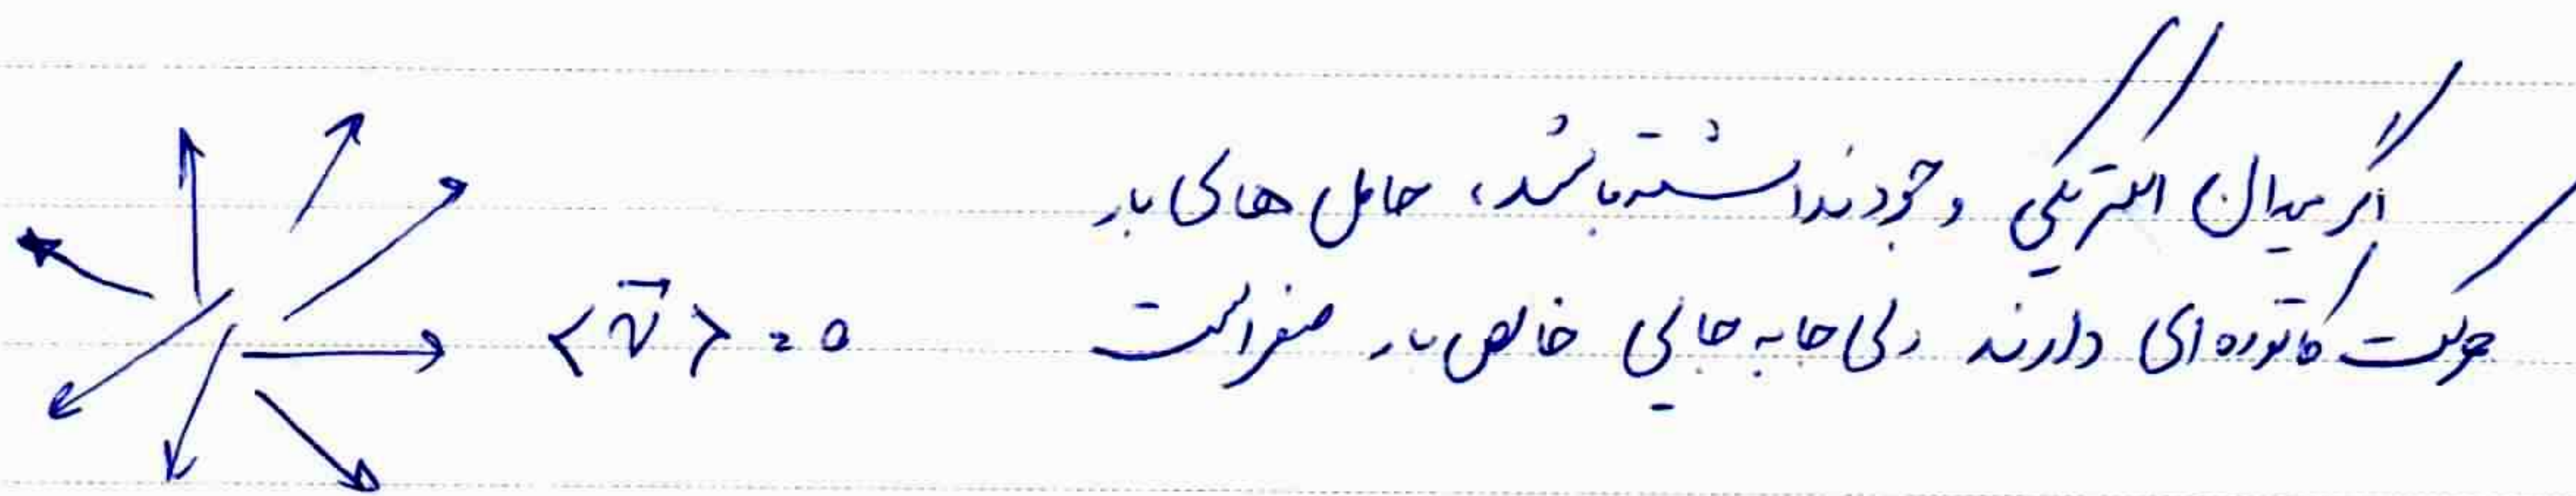 اگر میدان الکتریکی وجود نداشته باشد، حامل های بار
حرکت کاتوره ای دارند ولی جابه جایی خالص بار صفر است
<v⃗> = 0